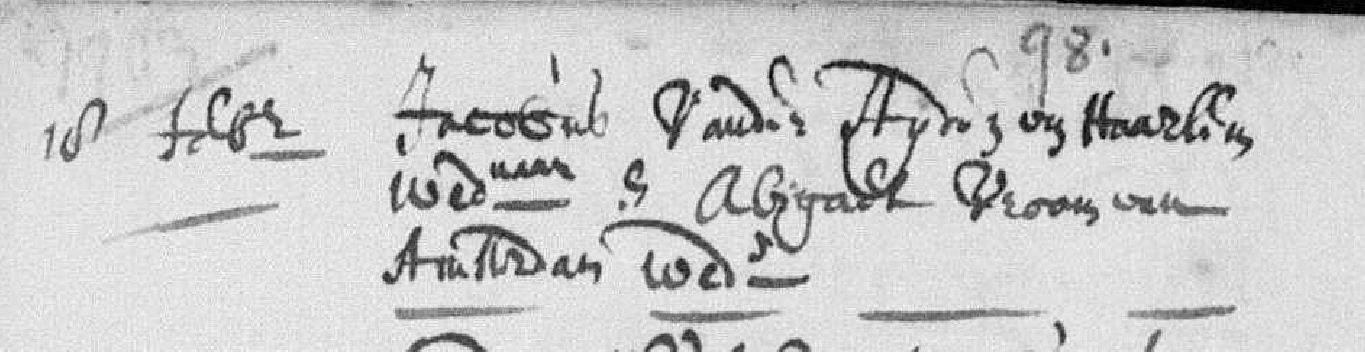 98.
18 febr Jacobus Vander Heyden van Haarlem
Wednaar & Abigael Vroom van
Amsterdam Wede